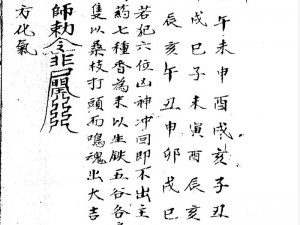 午未申酉戌亥子丑
戌巳子未寅酉辰亥
辰亥午丑申卯戌巳
若犯六位凶神冲回即不出主
药七種香為末以生鉄五谷各
隻以桑枝打頭而鳴魂出大吉
師勅令
方化氣